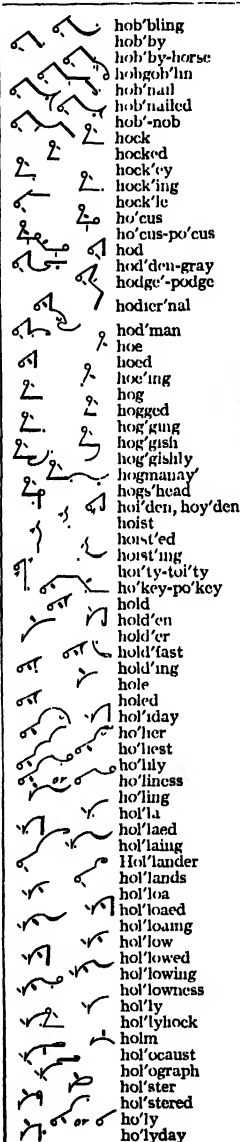 hob'bling
hob'by
hob'by-horse
hobgob'lin
hob'nail
hob'nailed
hob'-nob
hock
hocked
hock'ey
hock'ing
hock'le
ho'cus
ho'cus-po'cus
hod
hod'den-gray
hodge'-podge
hodier'nal
hod'man
hoe
hoed
hoe'ing
hog
hogged
hog'ging
hog'gish
hog'gishly
hogmanay'
hogs'head
hoi'den, hoy'den
hoist
hoist'ed
hoist'ing
hoi'ty-toi'ty
ho'key-po'key
hold
hold'en
hold'er
hold'fast
hold'ing
hole
holed
hol'iday
ho'lier
ho'liest
ho'lily
or ho'liness
ho'ling
hol'la
hol'laed
hol'laing
Hol'lander
hol'lands
hol'loa
hol'loaed
hol'loaing
hol'low
hol'lowed
hol'lowing
hol'lowness
hol'ly
hol'lyhock
holm
hol'ocaust
hol'ograph
hol'ster
hol'stered
or ho'ly
ho'lyday